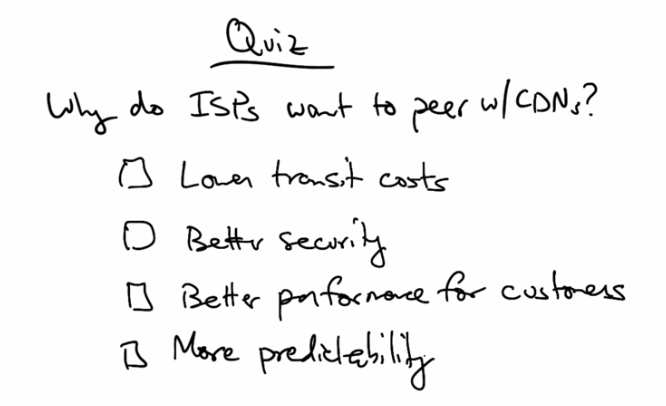 Quiz
Why do ISPs want to peer w/CDNs?
Lower transit costs
Better security
Better performance for customers
More predictability